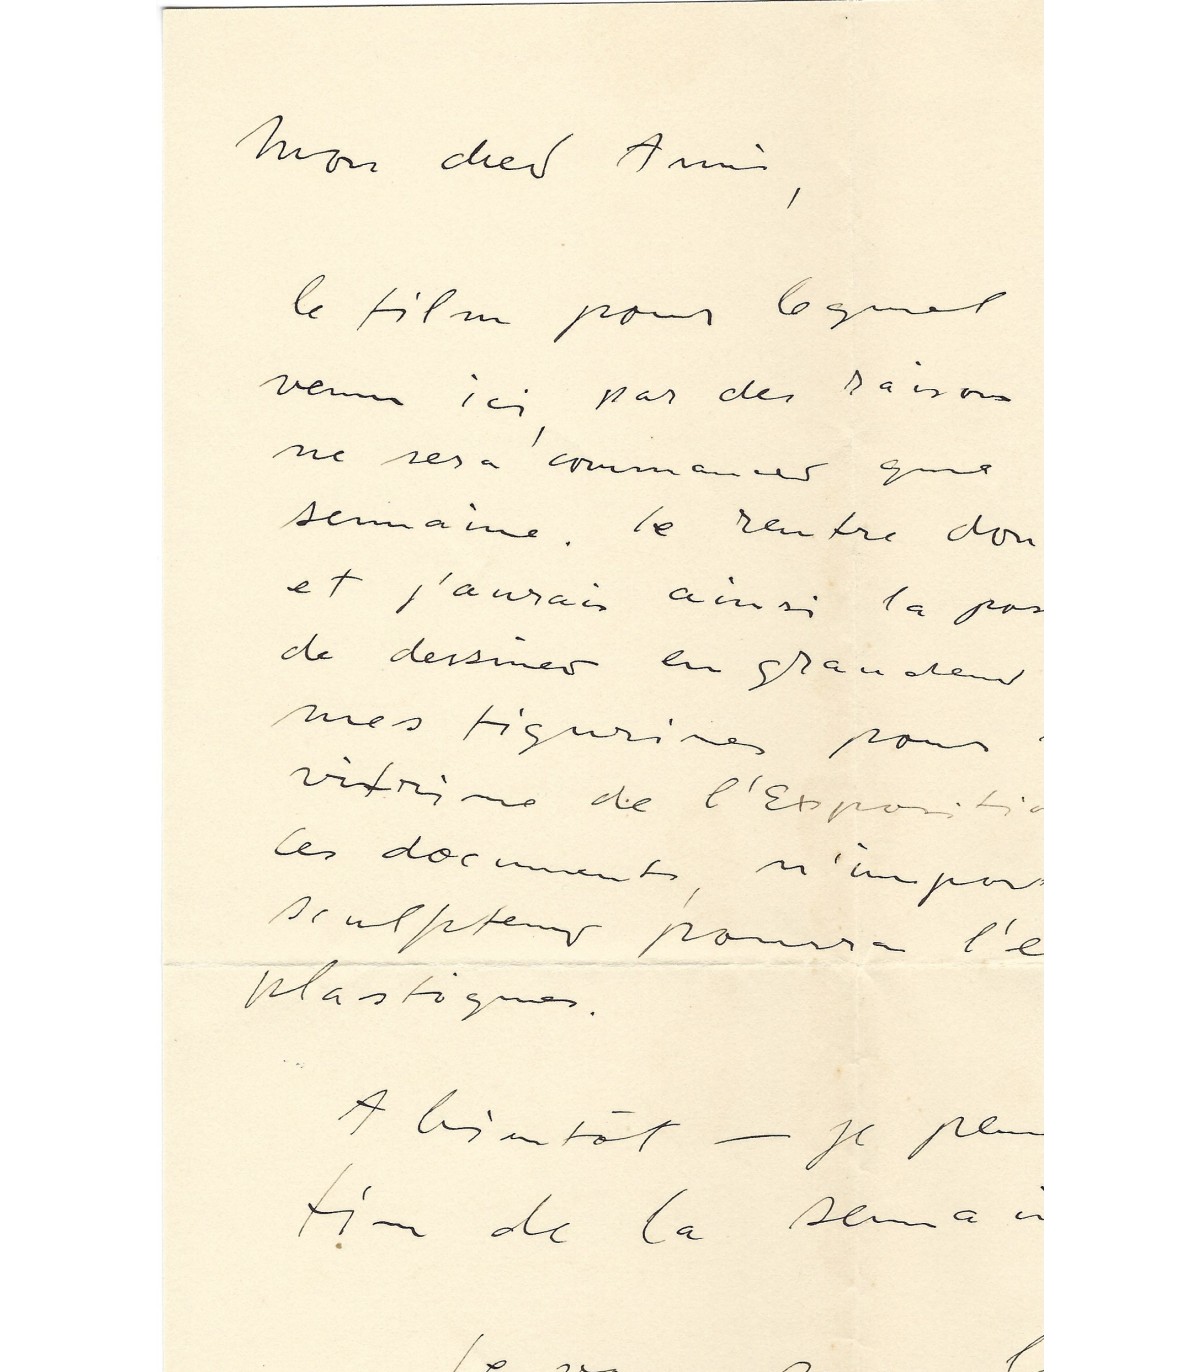 Mon cher Ami,
le film pour lequel
venu ici, par des raisons
ne sera commancer que
semaine. Je rentre don
et j'aurais ainsi la pos
de dessiner en grandeur
mes figurines pour
vitrine de l'Expositio
ces documents, n'import
sculpteur pourra l'e
plastiques.
A bientôt — je pen
fin de la semai